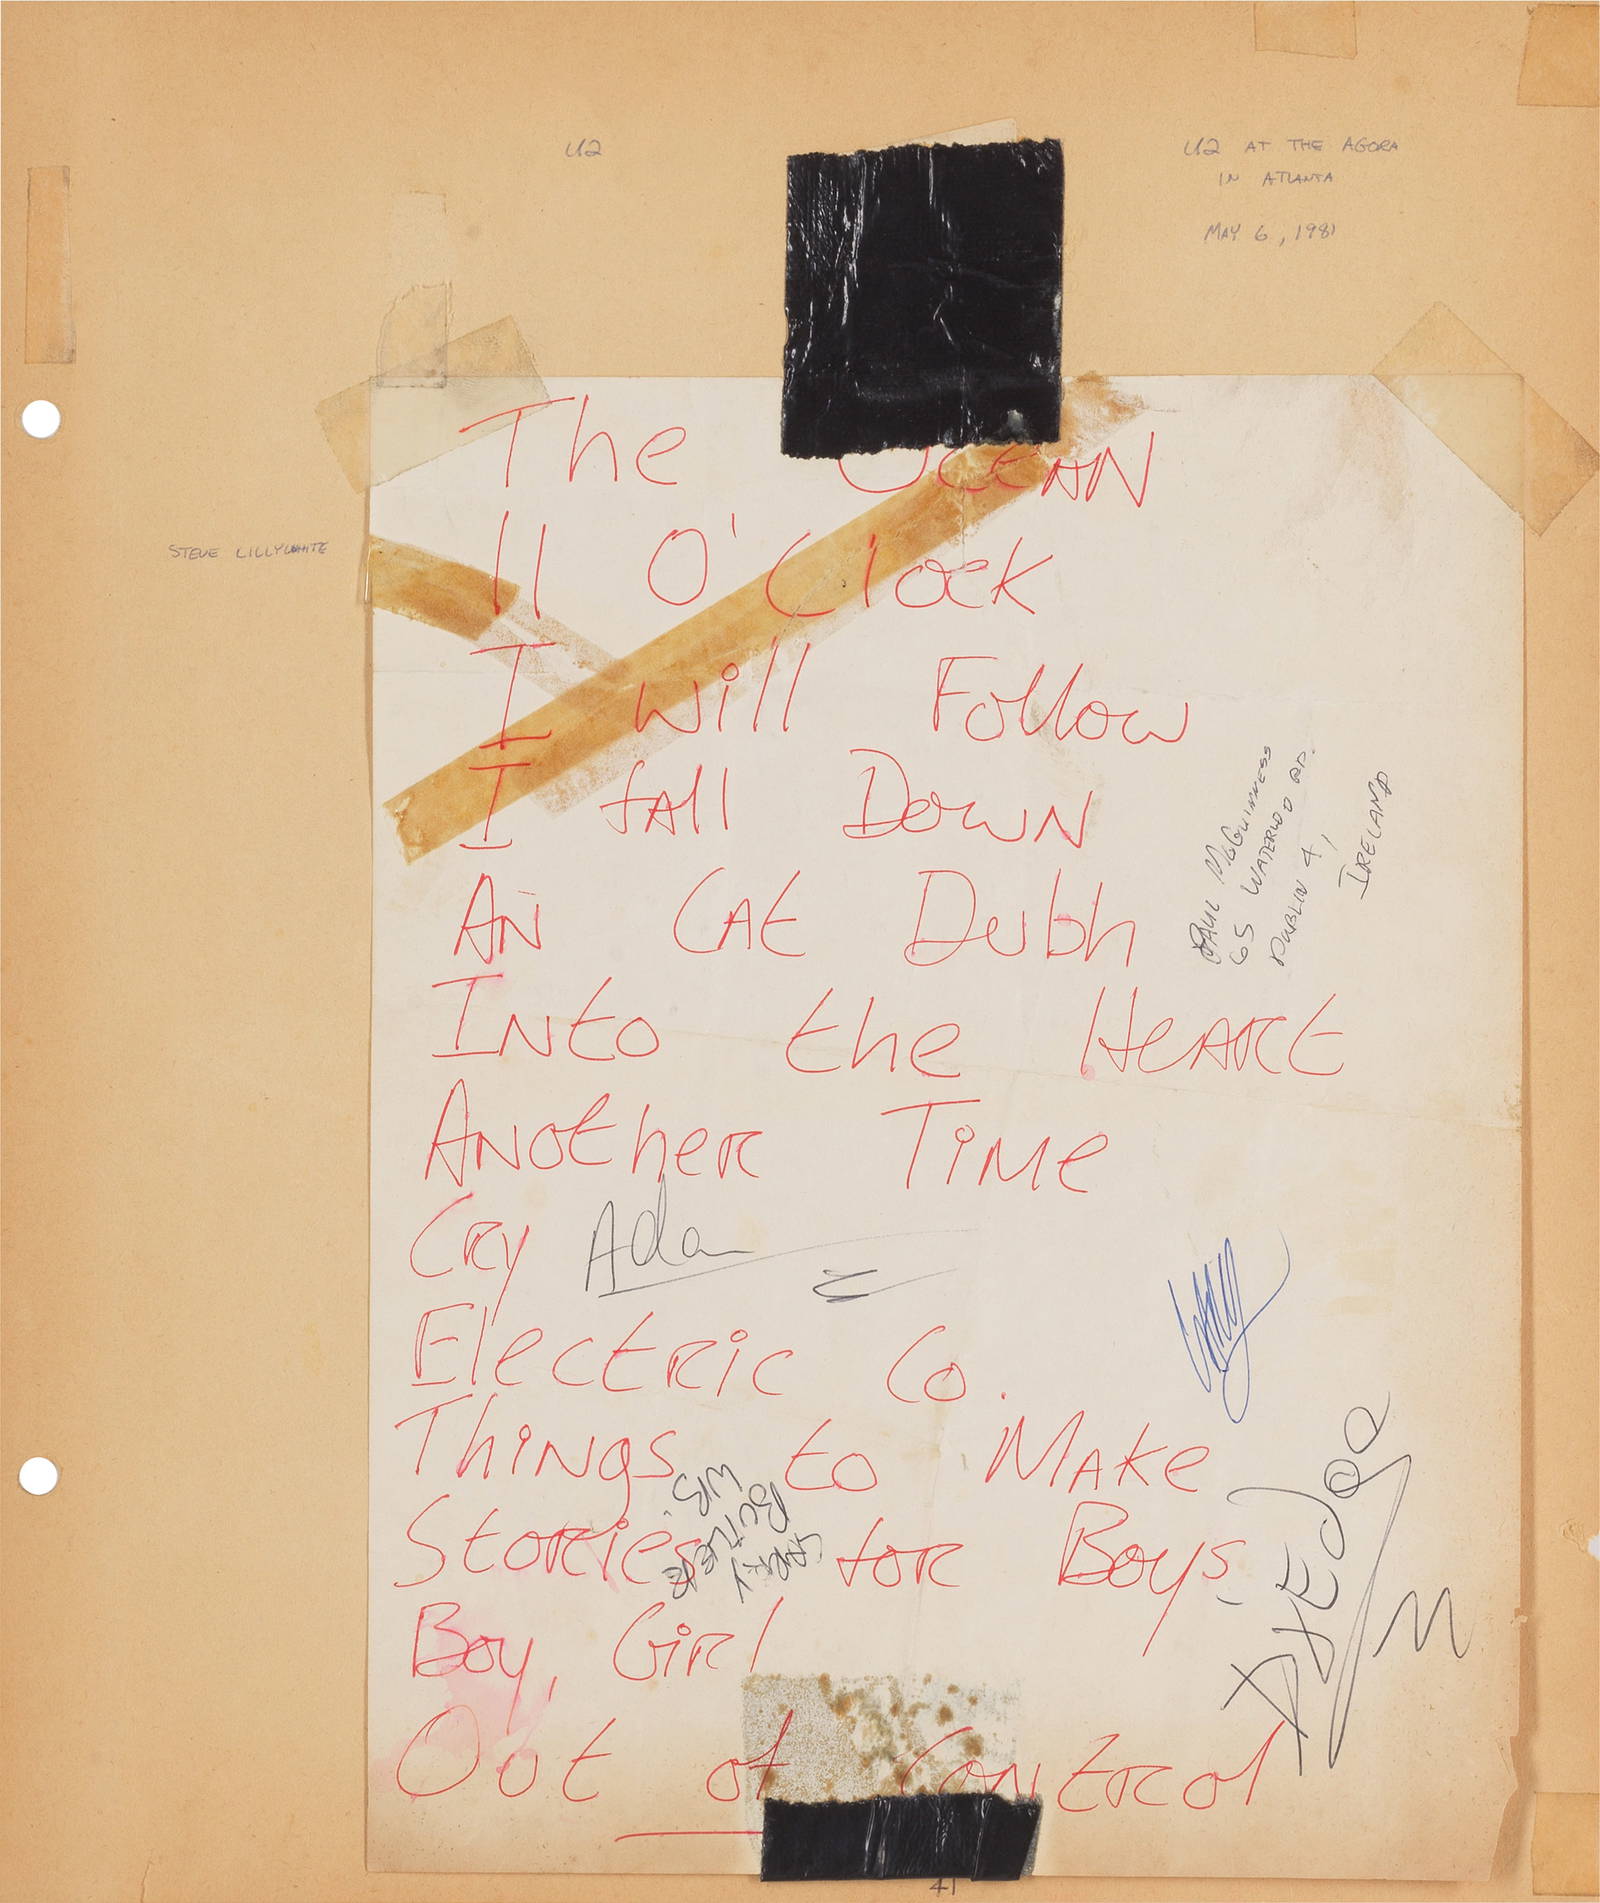 U2
U2 AT THE AGORA
IN ATLANTA
MAY 6, 1981
STEVE LILLYWHITE
The OCEAN
11 O'Clock
I will Follow
I fall Down
AN CAt Dubh
INto the HeARt
ANother TiMe
CRy
Adam
Electric Co.
Things to MAKe
Stories for Boys,
Boy, Girl
Out of CONtrol
PAUL McGUINNESS
65 WATERLOO RD.
DUBLIN 4,
IRELAND
LARRY
BUTLER
WB.
41